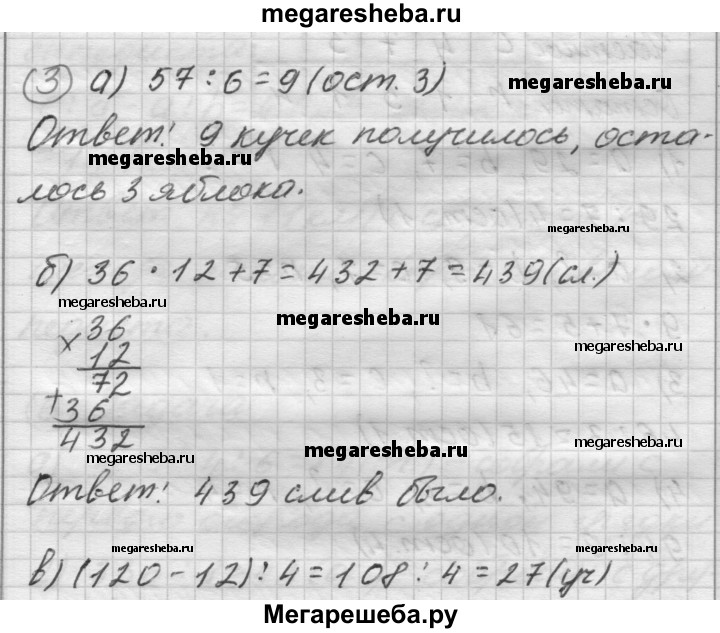 megaresheba.ru
③ а) 57 : 6 = 9 (ост. 3)
megaresheba.ru
Ответ: 9 кучек получилось, оста-
megaresheba.ru
лось 3 яблока.
megaresheba.ru
б) 36 · 12 + 7 = 432 + 7 = 439 (сл.)
megaresheba.ru
megaresheba.ru
× 36
12
megaresheba.ru
72
+ 36
432
megaresheba.ru
megaresheba.ru
megaresheba.ru
Ответ: 439 слив было.
megaresheba.ru
megaresheba.ru
в) (120 - 12) : 4 = 108 : 4 = 27 (уч)
Мегарешеба.ру